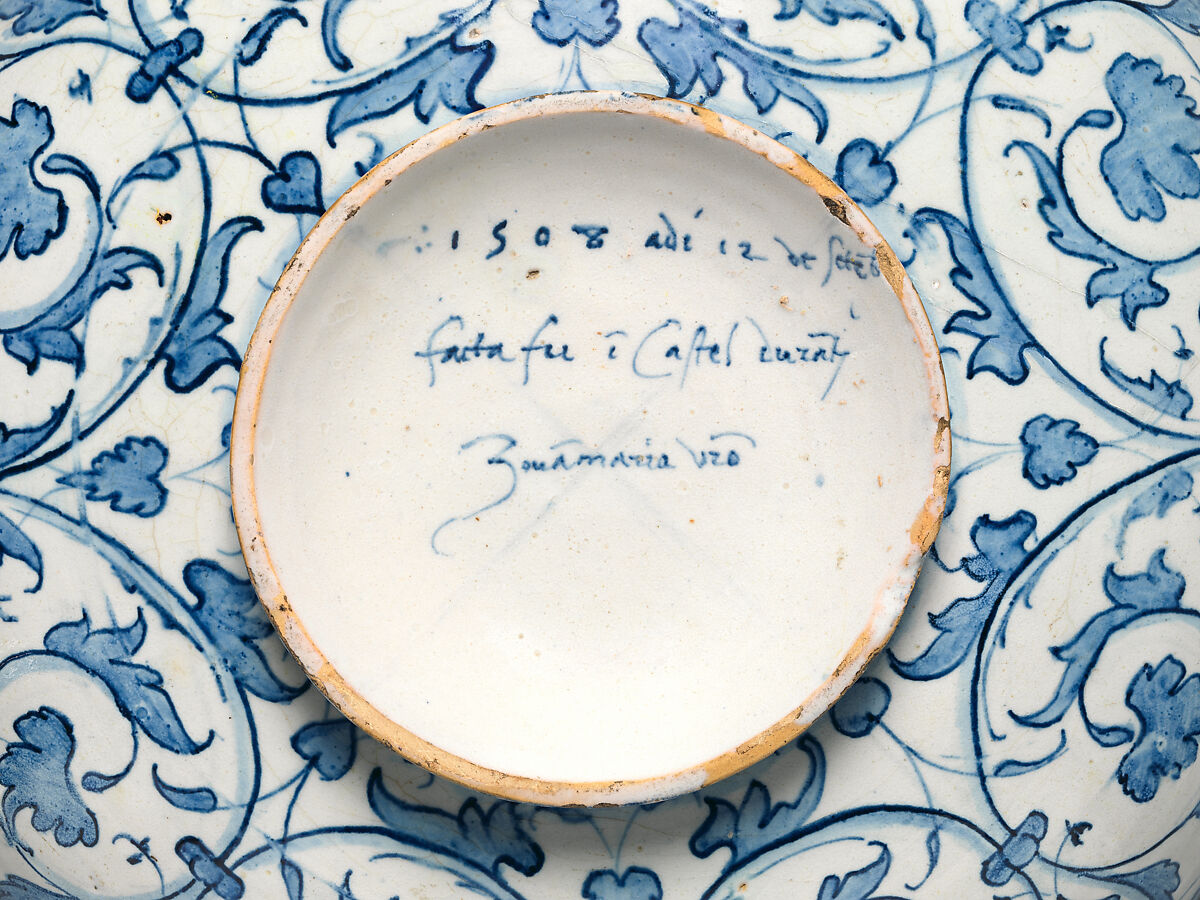 1508 adi 12 de setēb
facta fu ī Castel durātj
Zouāmaria vrō